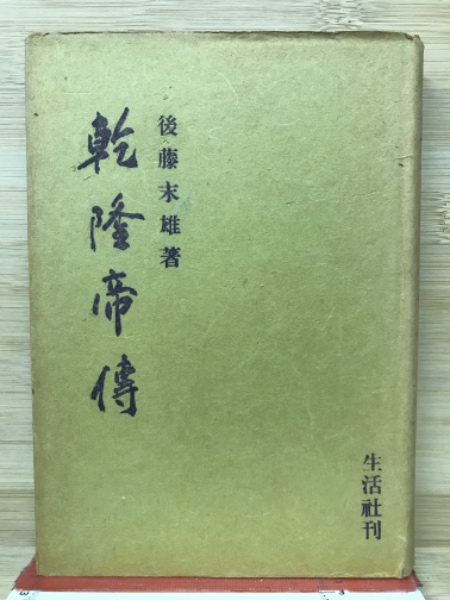 後藤末雄著
乾隆帝傳
生活社刊